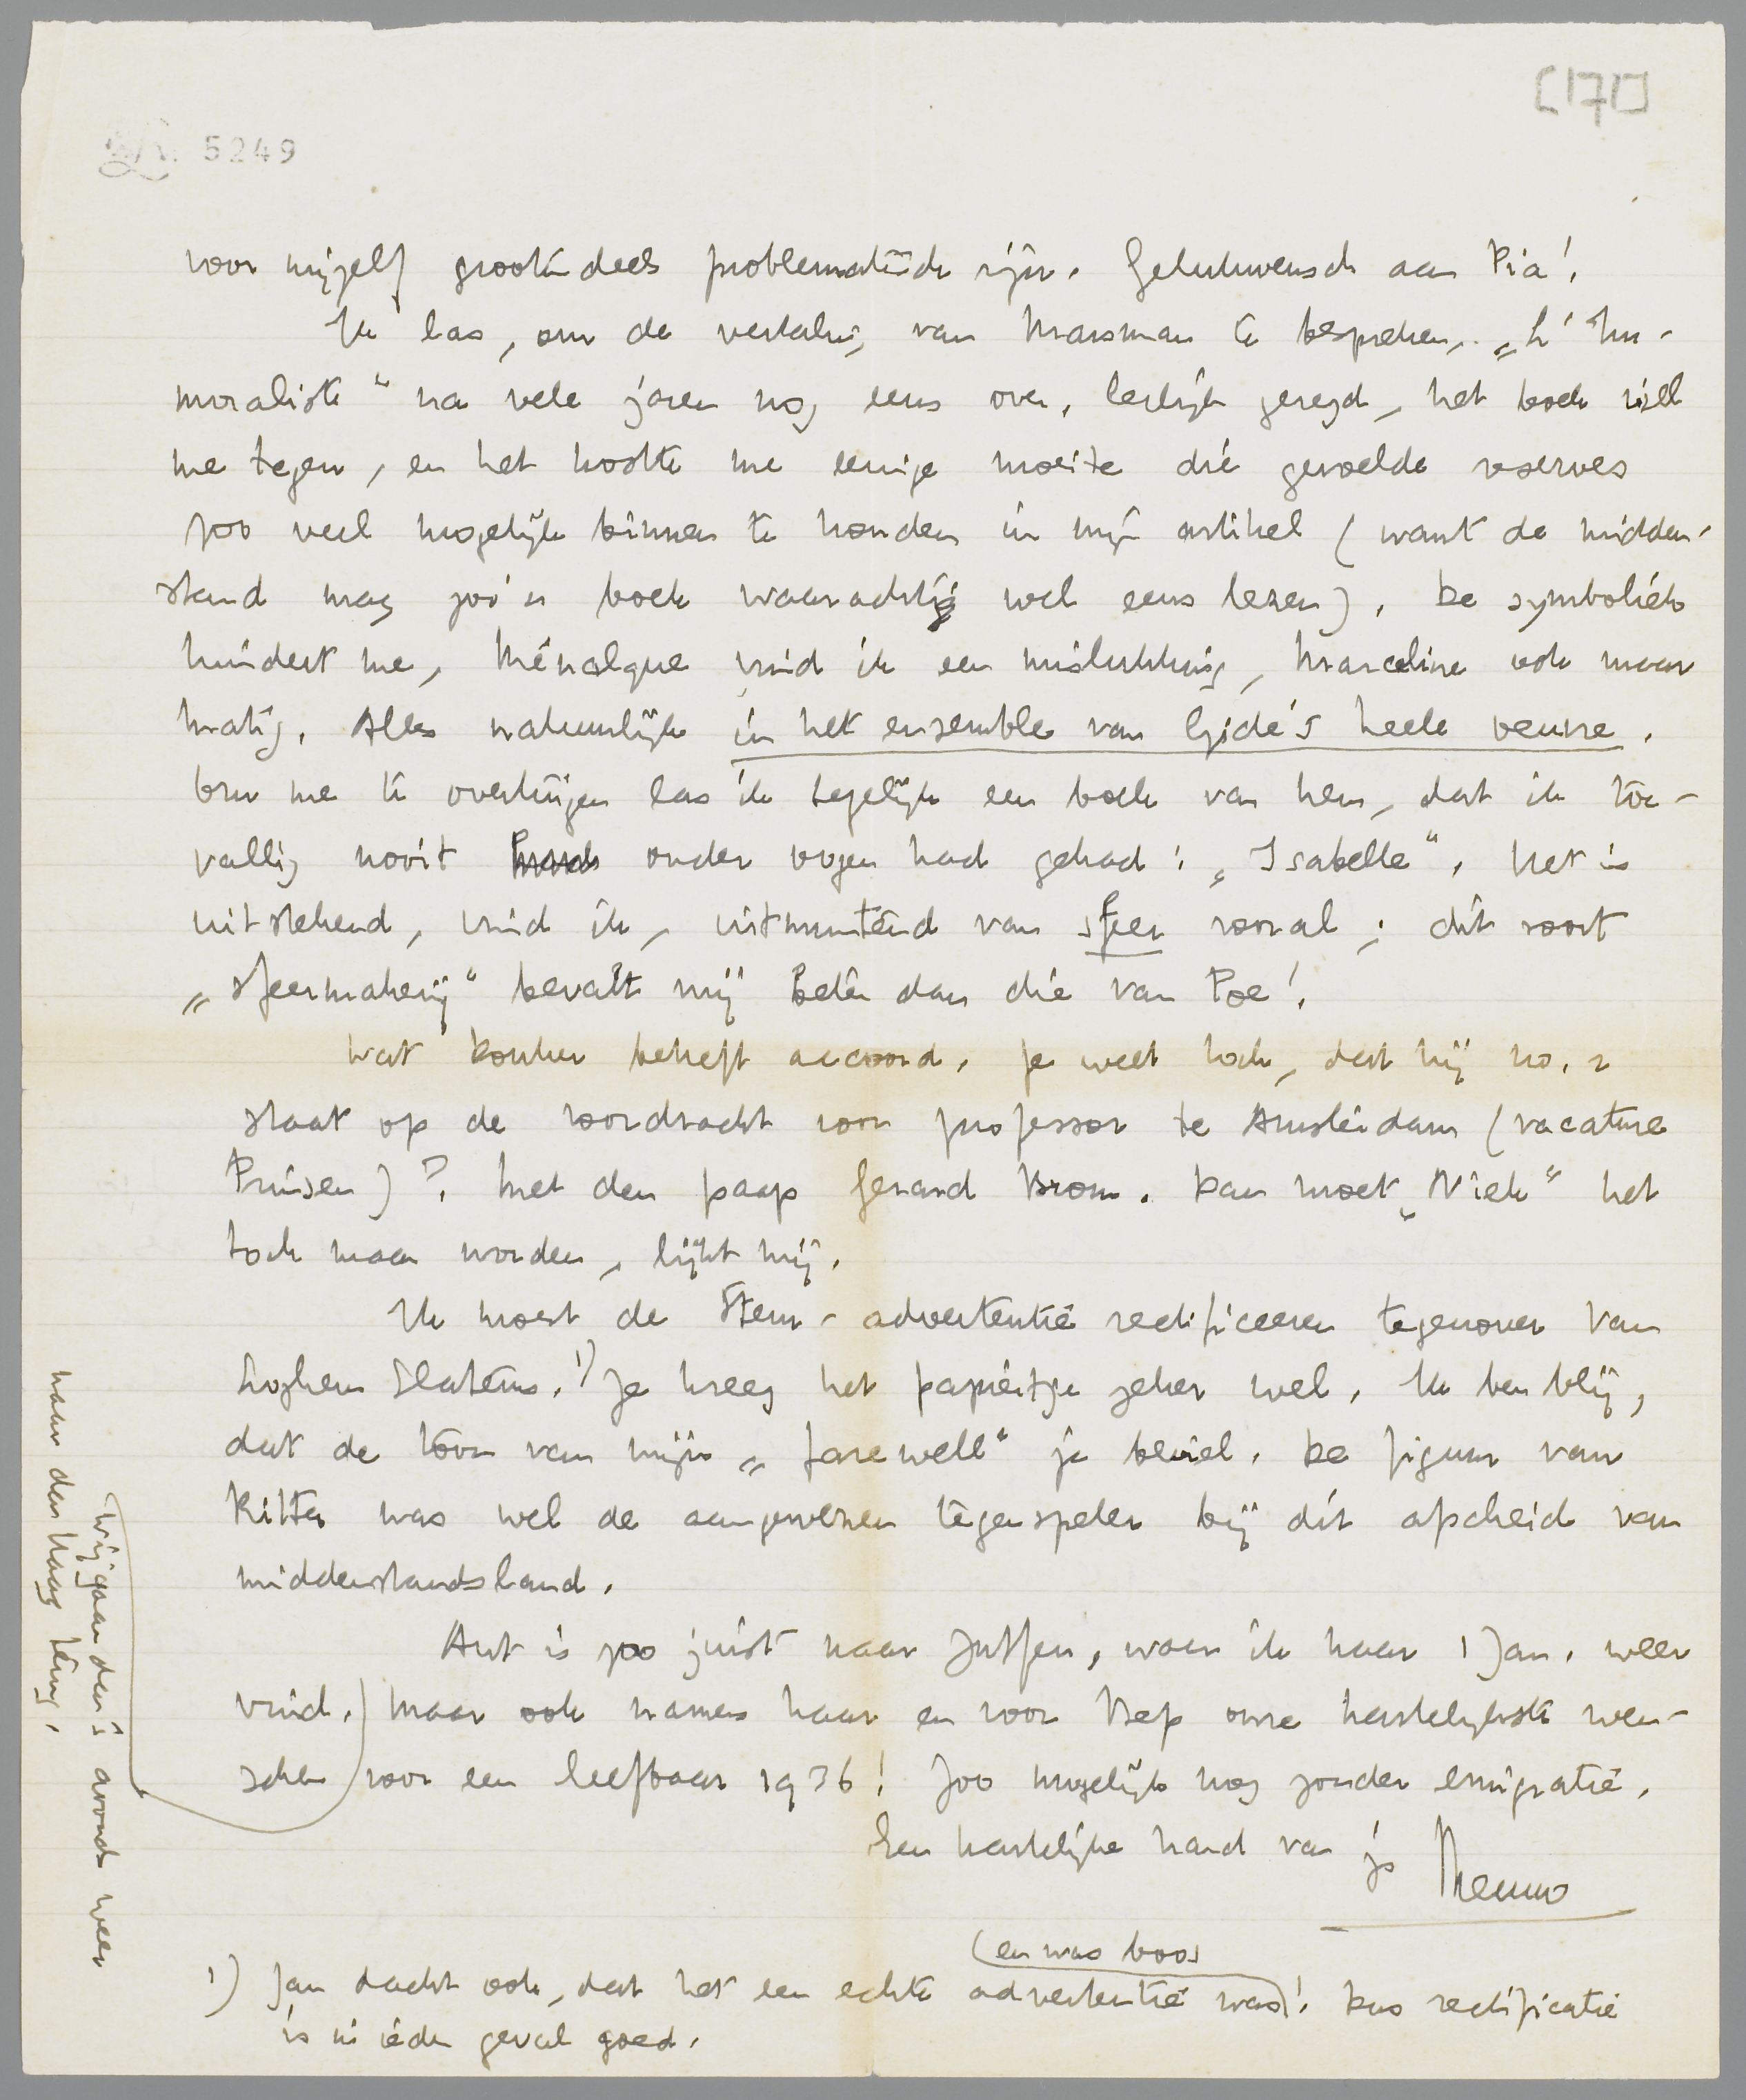 [171]
5249
voor mijzelf grootendeels problematisch zijn. Gelukwensch aan Pia!
Ik las, om de vertaling van Marsman te bespreken, „L'Im-
moraliste" na vele jaren nog eens over. Eerlijk gezegd, het boek viel
me tegen, en het kostte me eenige moeite die gevoelde reserves
zoo veel mogelijk binnen te houden in mijn artikel (want de midden-
stand mag zoo'n boek waarachtig wel eens lezen). De symboliek
hindert me, Ménalque vind ik een mislukking, Marceline ook maar
matig. Alles natuurlijk in het ensemble van Gide's heele oeuvre.
Om me te overtuigen las ik tegelijk een boek van hem, dat ik toe-
vallig nooit onder oogen had gehad: „Isabelle". Het is
uitstekend, vind ik, uitmuntend van sfeer vooral; dit soort
„sfeermakerij" bevalt mij beter dan die van Poe!
Wat Donker betreft accoord. Je weet toch, dat hij no. 2
staat op de voordracht voor professor te Amsterdam (vacature
Prinsen)? Met den paap Gerard Brom. Dan moet „Niek" het
toch maar worden, lijkt mij.
Ik moest de Stem-advertentie rectificeeren tegenover Van
Loghem Slaterus. 1) Je kreeg het papiertje zeker wel. Ik ben blij,
dat de toon van mijn „farewell" je beviel. De figuur van
Ritter was wel de aangewezen tegenspeler bij dit afscheid van
middenstandsland.
Ant is zoo juist naar Zutfen, waar ik haar 1 Jan. weer
vind.) Maar ook namens haar en voor Bep onze hartelijkste wen-
schen voor een leefbaar 1936! Zoo mogelijk nog zonder emigratie.
Een hartelijke hand van je Menno
(en was boos)
1) Jan dacht ook, dat het een echte advertentie was! Dus rectificatie
is in ieder geval goed.
Wij gaan dan 's avonds weer
naar den Haag terug.